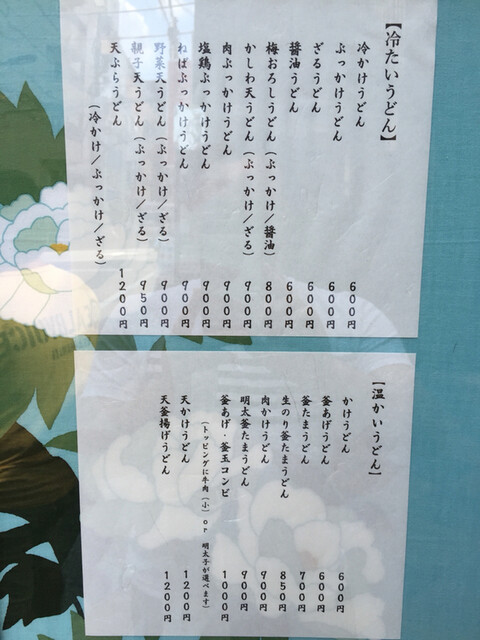 【冷たいうどん】
冷かけうどん 600円
ぶっかけうどん 600円
ざるうどん 600円
醤油うどん 600円
梅おろしうどん(ぶっかけ/醤油) 800円
かしわ天うどん(ぶっかけ/ざる) 900円
肉ぶっかけうどん 900円
塩鶏ぶっかけうどん 900円
ねばぶっかけうどん 900円
野菜天うどん(ぶっかけ/ざる) 900円
親子天うどん(ぶっかけ/ざる) 950円
天ぷらうどん 1200円
(冷かけ/ぶっかけ/ざる)
【温かいうどん】
かけうどん 600円
釜あげうどん 600円
釜たまうどん 700円
生のり釜たまうどん 850円
肉かけうどん 900円
明太釜たまうどん 900円
釜あげ・釜玉コンビ 1000円
(トッピングに牛肉(小)or 明太子が選べます)
天かけうどん 1200円
天釜揚げうどん 1200円